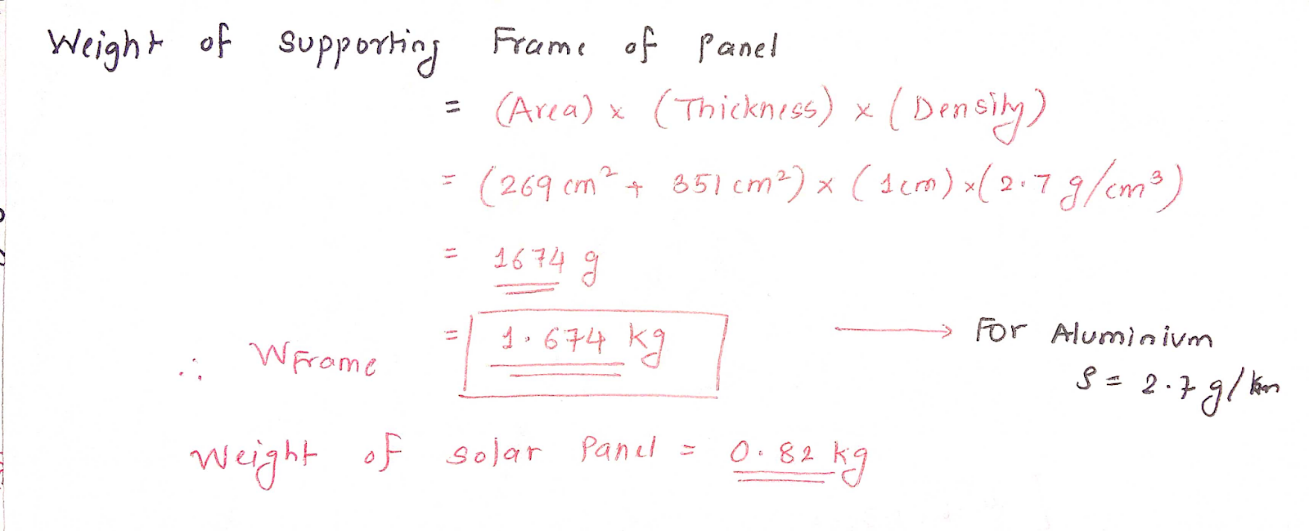 Weight of supporting Frame of panel
= (Area) x (Thickness) x (Density)
= (269 cm² + 351 cm²) x (1cm) x (2.7 g/cm³)
= 1674 g
∴ WFrame = 1.674 kg → For Aluminium
ρ = 2.7 g/km
Weight of solar Panel = 0.82 kg